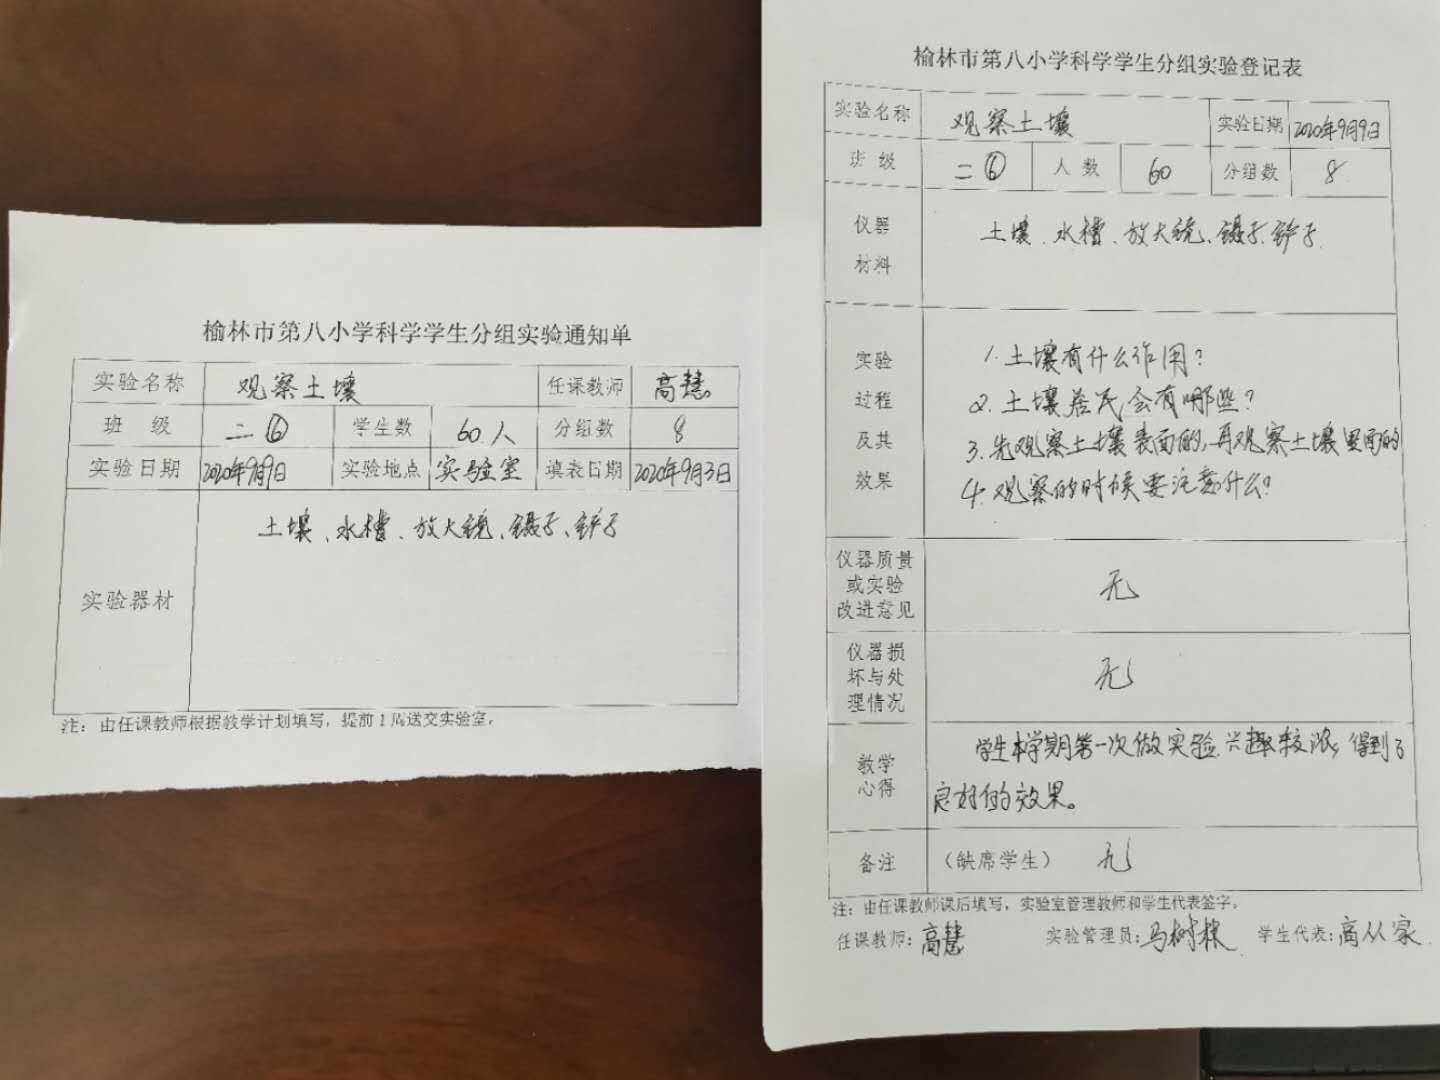 榆林市第八小学科学学生分组实验通知单
实验名称 观察土壤 任课教师 高慧
班 级 二⑥ 学生数 60人 分组数 8
实验日期 2020年9月9日 实验地点 实验室 填表日期 2020年9月3日
实验器材 土壤、水槽、放大镜、镊子、铲子
注：由任课教师根据教学计划填写，提前1周送交实验室。
榆林市第八小学科学学生分组实验登记表
实验名称 观察土壤 实验日期 2020年9月9日
班 级 二⑥ 人 数 60 分组数 8
仪器
材料
土壤、水槽、放大镜、镊子、铲子
实验
过程
及其
效果
1. 土壤有什么作用?
2. 土壤居民会有哪些?
3. 先观察土壤表面的,再观察土壤里面的
4. 观察的时候要注意什么?
仪器质量
或实验
改进意见
无
仪器损
坏与处
理情况
无
教学
心得
学生本学期第一次做实验,兴趣较浓,得到了
良好的效果。
备注 （缺席学生） 无
注：由任课教师课后填写，实验室管理教师和学生代表签字。
任课教师：高慧 实验管理员：马树林 学生代表：高从家